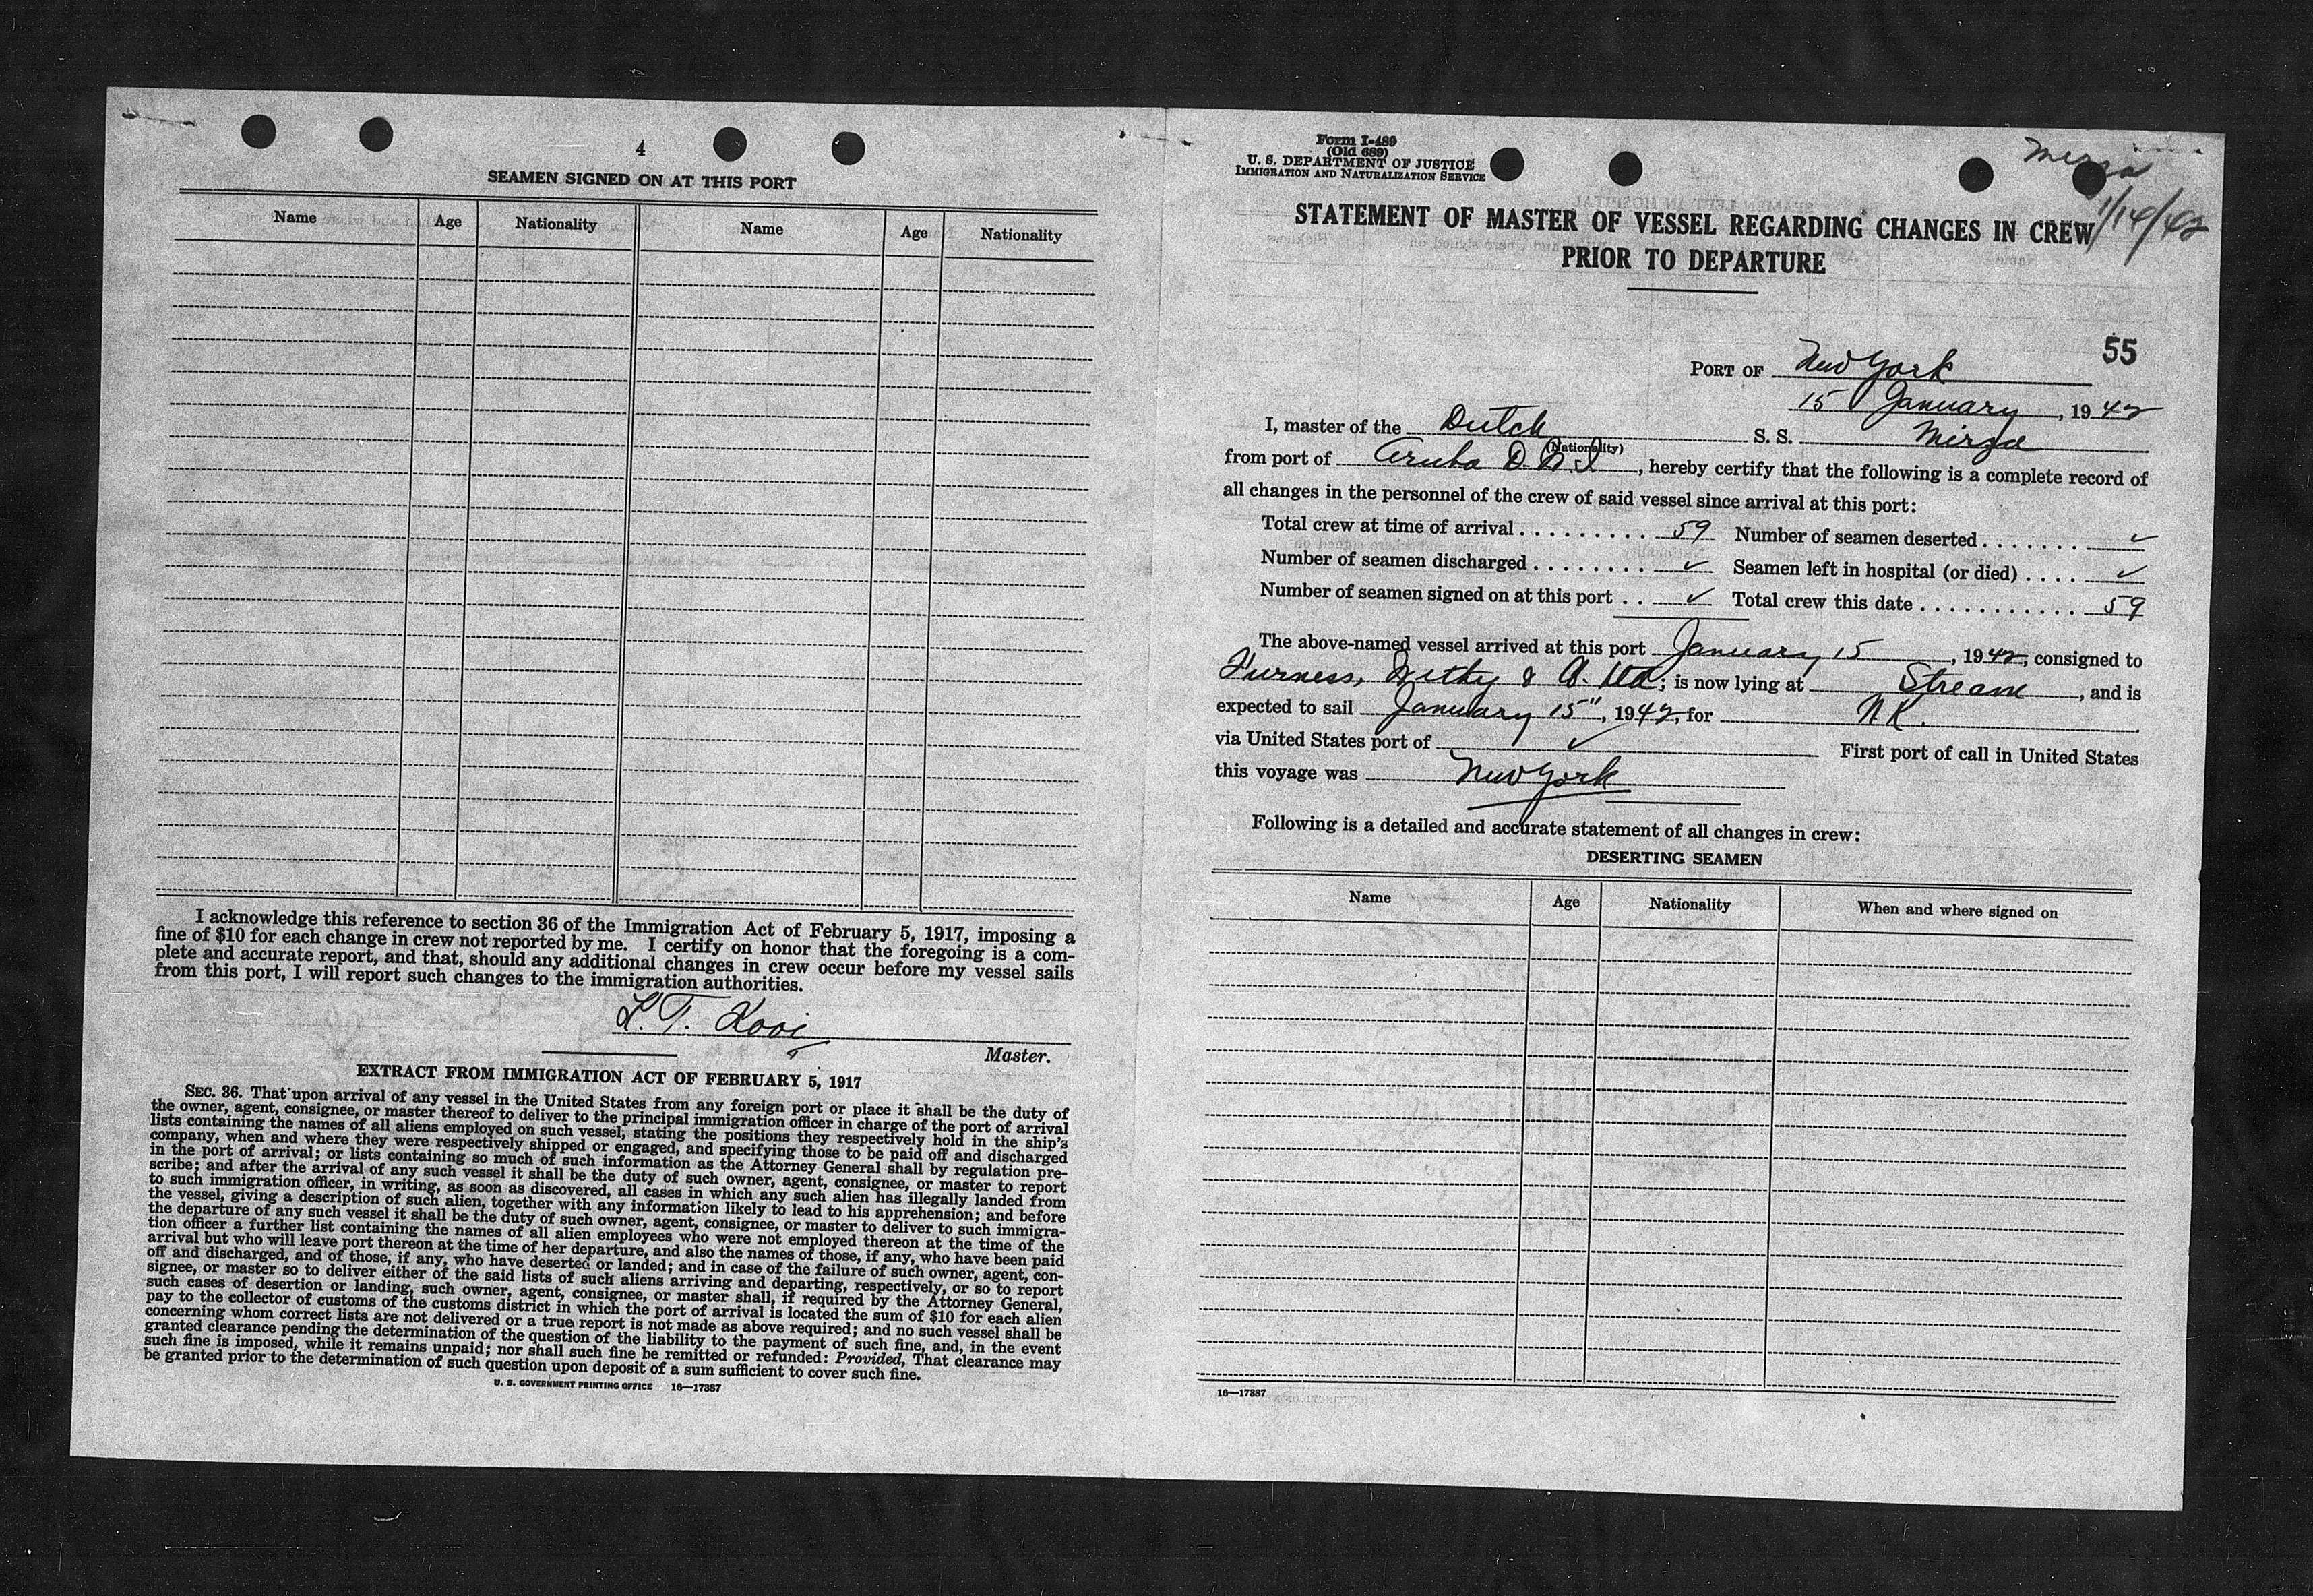 4
SEAMEN SIGNED ON AT THIS PORT
Name Age Nationality Name Age Nationality
I acknowledge this reference to section 36 of the Immigration Act of February 5, 1917, imposing a
fine of $10 for each change in crew not reported by me. I certify on honor that the foregoing is a com-
plete and accurate report, and that, should any additional changes in crew occur before my vessel sails
from this port, I will report such changes to the immigration authorities.
L. T. Kooi
Master.
EXTRACT FROM IMMIGRATION ACT OF FEBRUARY 5, 1917
SEC. 36. That upon arrival of any vessel in the United States from any foreign port or place it shall be the duty of
the owner, agent, consignee, or master thereof to deliver to the principal immigration officer in charge of the port of arrival
lists containing the names of all aliens employed on such vessel, stating the positions they respectively hold in the ship's
company, when and where they were respectively shipped or engaged, and specifying those to be paid off and discharged
in the port of arrival; or lists containing so much of such information as the Attorney General shall by regulation pre-
scribe; and after the arrival of any such vessel it shall be the duty of such owner, agent, consignee, or master to report
to such immigration officer, in writing, as soon as discovered, all cases in which any such alien has illegally landed from
the vessel, giving a description of such alien, together with any information likely to lead to his apprehension; and before
the departure of any such vessel it shall be the duty of such owner, agent, consignee, or master to deliver to such immigra-
tion officer a further list containing the names of all alien employees who were not employed thereon at the time of the
arrival but who will leave port thereon at the time of her departure, and also the names of those, if any, who have been paid
off and discharged, and of those, if any, who have deserted or landed; and in case of the failure of such owner, agent, con-
signee, or master so to deliver either of the said lists of such aliens arriving and departing, respectively, or so to report
such cases of desertion or landing, such owner, agent, consignee, or master shall, if required by the Attorney General,
pay to the collector of customs of the customs district in which the port of arrival is located the sum of $10 for each alien
concerning whom correct lists are not delivered or a true report is not made as above required; and no such vessel shall be
granted clearance pending the determination of the question of the liability to the payment of such fine, and, in the event
such fine is imposed, while it remains unpaid; nor shall such fine be remitted or refunded: Provided, That clearance may
be granted prior to the determination of such question upon deposit of a sum sufficient to cover such fine.
U. S. GOVERNMENT PRINTING OFFICE 16—17387
Form I-489
(Old 689)
U. S. DEPARTMENT OF JUSTICE
IMMIGRATION AND NATURALIZATION SERVICE
Mirza
1/14/42
STATEMENT OF MASTER OF VESSEL REGARDING CHANGES IN CREW
PRIOR TO DEPARTURE
55
PORT OF New York
15 January, 1942
I, master of the Dutch S. S. Mirza
(Nationality)
from port of Aruba D.W.I, hereby certify that the following is a complete record of
all changes in the personnel of the crew of said vessel since arrival at this port:
Total crew at time of arrival . . . . . . . . . 59 Number of seamen deserted . . . . . . . ✓
Number of seamen discharged . . . . . . . . ✓ Seamen left in hospital (or died) . . . . ✓
Number of seamen signed on at this port . . ✓ Total crew this date . . . . . . . . . . . . 59
The above-named vessel arrived at this port January 15, 1942, consigned to
Furness, Withy & Co. Ltd; is now lying at Stream, and is
expected to sail January 15", 1942, for N K.
via United States port of ✓ First port of call in United States
this voyage was New York
Following is a detailed and accurate statement of all changes in crew:
DESERTING SEAMEN
Name Age Nationality When and where signed on
16—17387